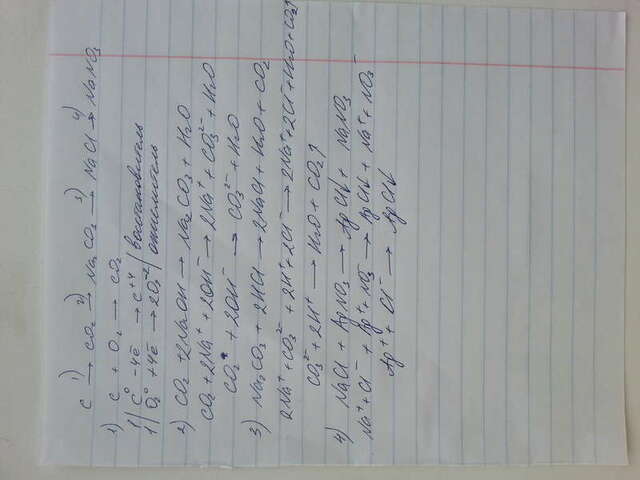 C 1)→ CO2 2)→ Na2CO3 3)→ NaCl 4)→ NaNO3
1) C + O2 → CO2
1| C⁰ -4ē → C⁺⁴ | восстановитель
1| O2⁰ +4ē → 2O⁻² | окислитель
2) CO2 + 2NaOH → Na2CO3 + H2O
CO2 + 2Na⁺ + 2OH⁻ → 2Na⁺ + CO3²⁻ + H2O
CO2 + 2OH⁻ → CO3²⁻ + H2O
3) Na2CO3 + 2HCl → 2NaCl + H2O + CO2
2Na⁺ + CO3²⁻ + 2H⁺ + 2Cl⁻ → 2Na⁺ + 2Cl⁻ + H2O + CO2↑
CO3²⁻ + 2H⁺ → H2O + CO2↑
4) NaCl + AgNO3 → AgCl↓ + NaNO3
Na⁺ + Cl⁻ + Ag⁺ + NO3⁻ → AgCl↓ + Na⁺ + NO3⁻
Ag⁺ + Cl⁻ → AgCl↓